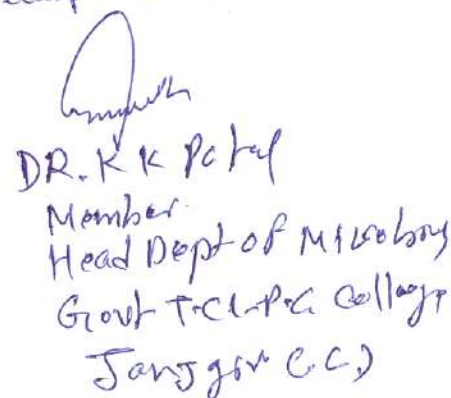 DR. K K Patel
Member
Head Dept of Microbiology
Govt T.C.L. P.G. College
Janjgir (C.G.)